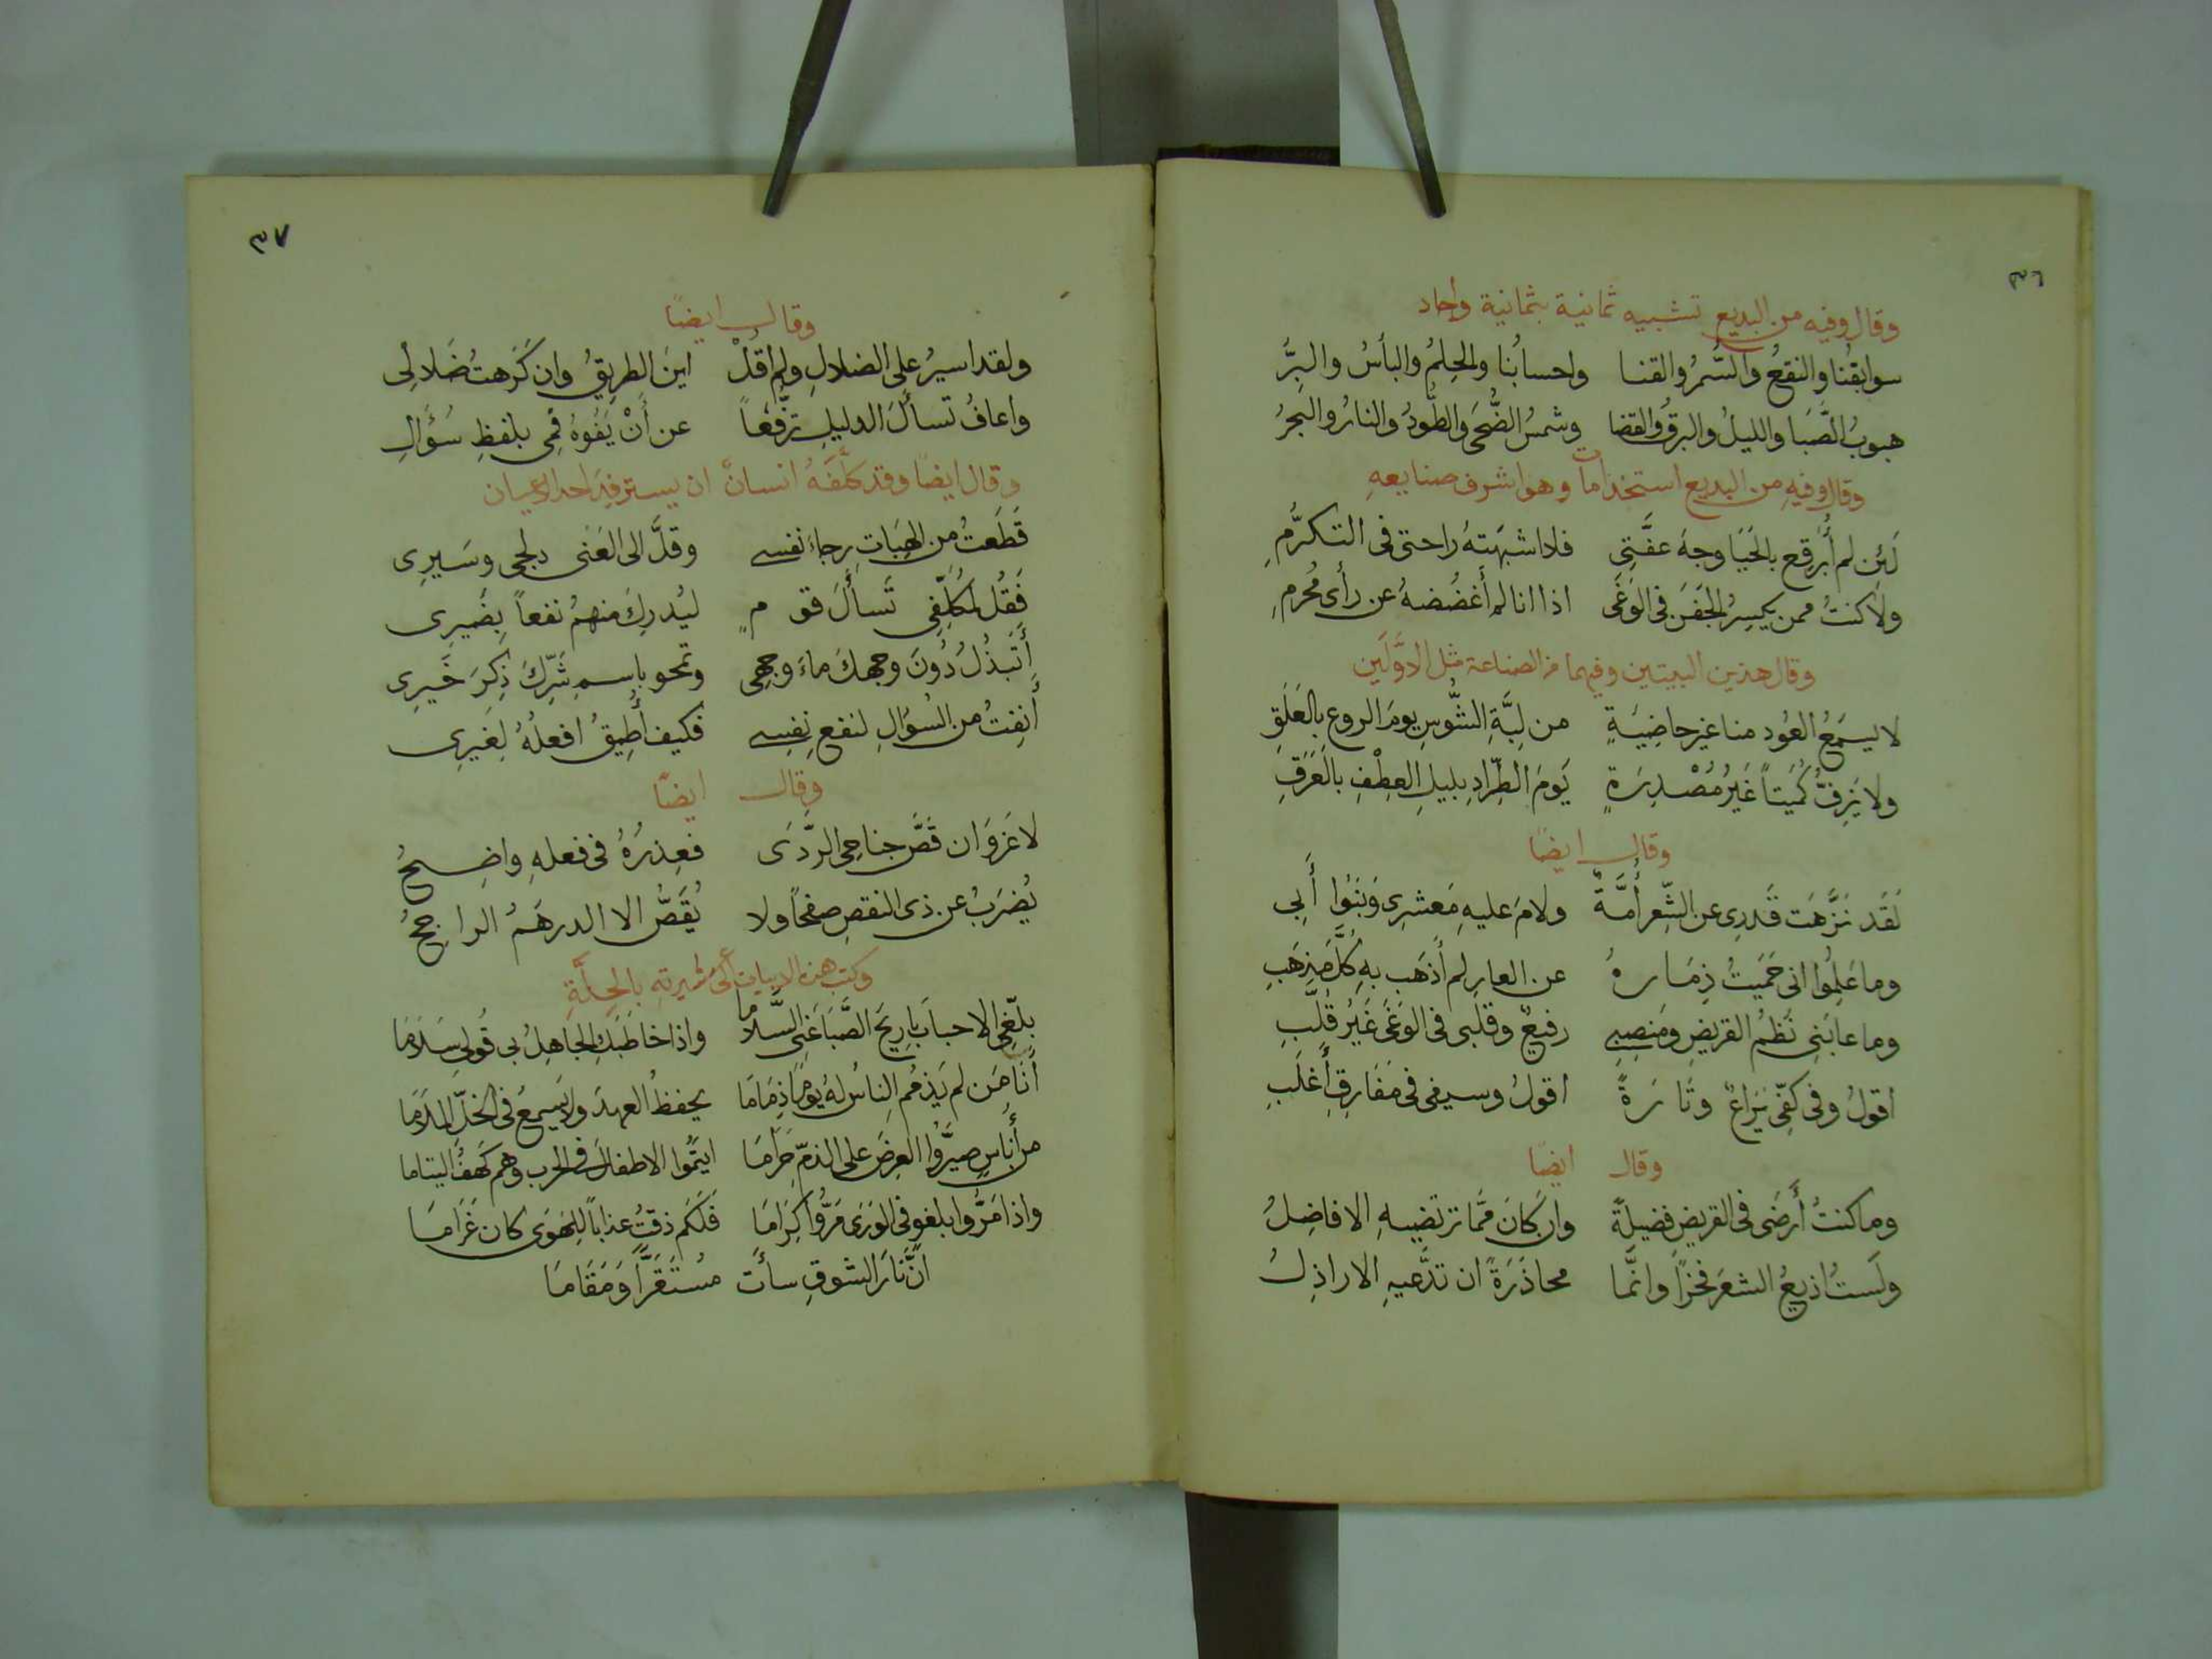 ٣٦
وقال وفيه من البديع تشبيه ثمانية بثمانية واجاد
سوابقُنا والنقعُ والسُّمرُ والقنا واحسابُنا والحِلمُ والبأسُ والبِرُّ
هبوبُ الصَّبَا والليلُ والبرقُ والقضا وشمسُ الضُّحَى والطَّودُ والنارُ والبحرُ
وقال وفيهِ من البديع استخدامات وهو اشرف صنايعهِ
لَئِن لم أُبَرقِع بالحَيَا وجهَ عفَّتِى فلا اشبهَتهُ راحتى فى التكرُّمِ
ولا كنتُ ممن يكسِرُ الجَفنَ فى الوَغَى اذا انا لم أَغضُضهُ عن رأى مُحرمِ
وقال هذين البيتين وفيهما من الصناعة مثل الاوَّلَين
لا يسمَعُ العُود منا غير خاضِبَةٍ من لبَّةِ الشُّوسِ يومَ الروع بالعَلَقِ
ولا يَزِفُّ كُميتاً غَيرُ مُصْدِرَةٍ يَومَ الطِّرادِ بليلِ العِطْفِ بالعَرَقِ
وقال ايضا
لَقَد نَزَّهَت قَدرِى عن الشِّعرِ أُمَّةٌ ولامَ عليهِ مَعشرِى وَبَنُوا أَبِى
وما عَلِمُوا انى حَميَتُ ذِمَارهُ عن العارِ لم أَذهَب بهِ كُلَّ مَذهَبِ
وما عابَنِى نَظمُ القريضِ ومَنصِبِى رفيعٌ وقلبى فى الوَغَى غَيرُ قُلَّبِ
اقولُ وفى كفِّى يَراعٌ وتَارَةً اقولُ وسيفى فى مَفَارِقِ أَغلَبِ
وقال ايضا
وما كنتُ أَرضَى فى القريضِ فضيلةً وان كانَ ممَّا ترتضيهِ الافاضِلُ
ولَستُ اذيعُ الشعرَ فخرًا وانَّما محاذَرَةً ان تدَّعيهِ الاراذِلُ
٣٧
وقال ايضًا
ولقد اسيرُ على الضلالِ ولم أَقُلْ اينَ الطريقُ وان كَرَهتُ ضَلالِى
واعافُ تسأَلَ الدليلِ ترفُّعاً عن أَنْ يَفُوهَ فمِى بلفظِ سُؤَالِ
وقال ايضا وقد كلَّفَهُ انسانٌ ان يسترفِدَ احد الاعيان
قَطَعتُ من الهِبَاتِ رجاءَ نفسى وقلَّ الى الغنى دلجى وسَيرِى
فَقُل لمُكَلِّفى تَسأَلَ قومٍ ليُدرِكَ منهمُ نفعاً بِضَيرِى
أَتَبذُلُ دُونَ وجهكَ ماءَ وجهى وتمحو باسمِ شَرِّكَ ذِكرَ خَيرِى
أَنِفتُ من السُؤالِ لنفعِ نفسِى فكيف أُطِيقُ افعلُهُ لِغَيرِى
وقال ايضًا
لا غَروَ ان قَصَّ جناحِى الرَّدَى فعِذرُهُ فى فعلهِ واضِحُ
يُضرَبُ عن ذى النقصِ صفحاً ولا يُقَصُّ الا الدرهَمُ الراجحُ
وكتب هذه الابيات الى عشيرتهِ بالحِلَّةِ
بلّغِى الاحبابَ ياريحَ الصَّبَا عَنِى السَّلاما واذا خاطَبَكِ الجاهِلُ بى قُولى سَلامَا
أَنَا مَن لم يَذمُمِ الناسُ لهُ يومًا ذِمَامَا يحفظُ العهدَ ولا يَسمعُ فى الخلِّ المَلامَا
من أُناسٍ صيَّرُوا العِرضَ على الذمّ حَرَامَا ايتَمُوا الاطفالَ فى الحرب وهم كَهفُ اليتاما
واذا مَرُّوا بلغوٍ فى الوَرَى مَرُّوا كِرَامَا فَلَكَم ذقتُ عذاباً للِهَوَى كان غَرَامَا
انَّ نَارَ الشوقِ سأَت مُستَقَرًّا وَمَقَامَا